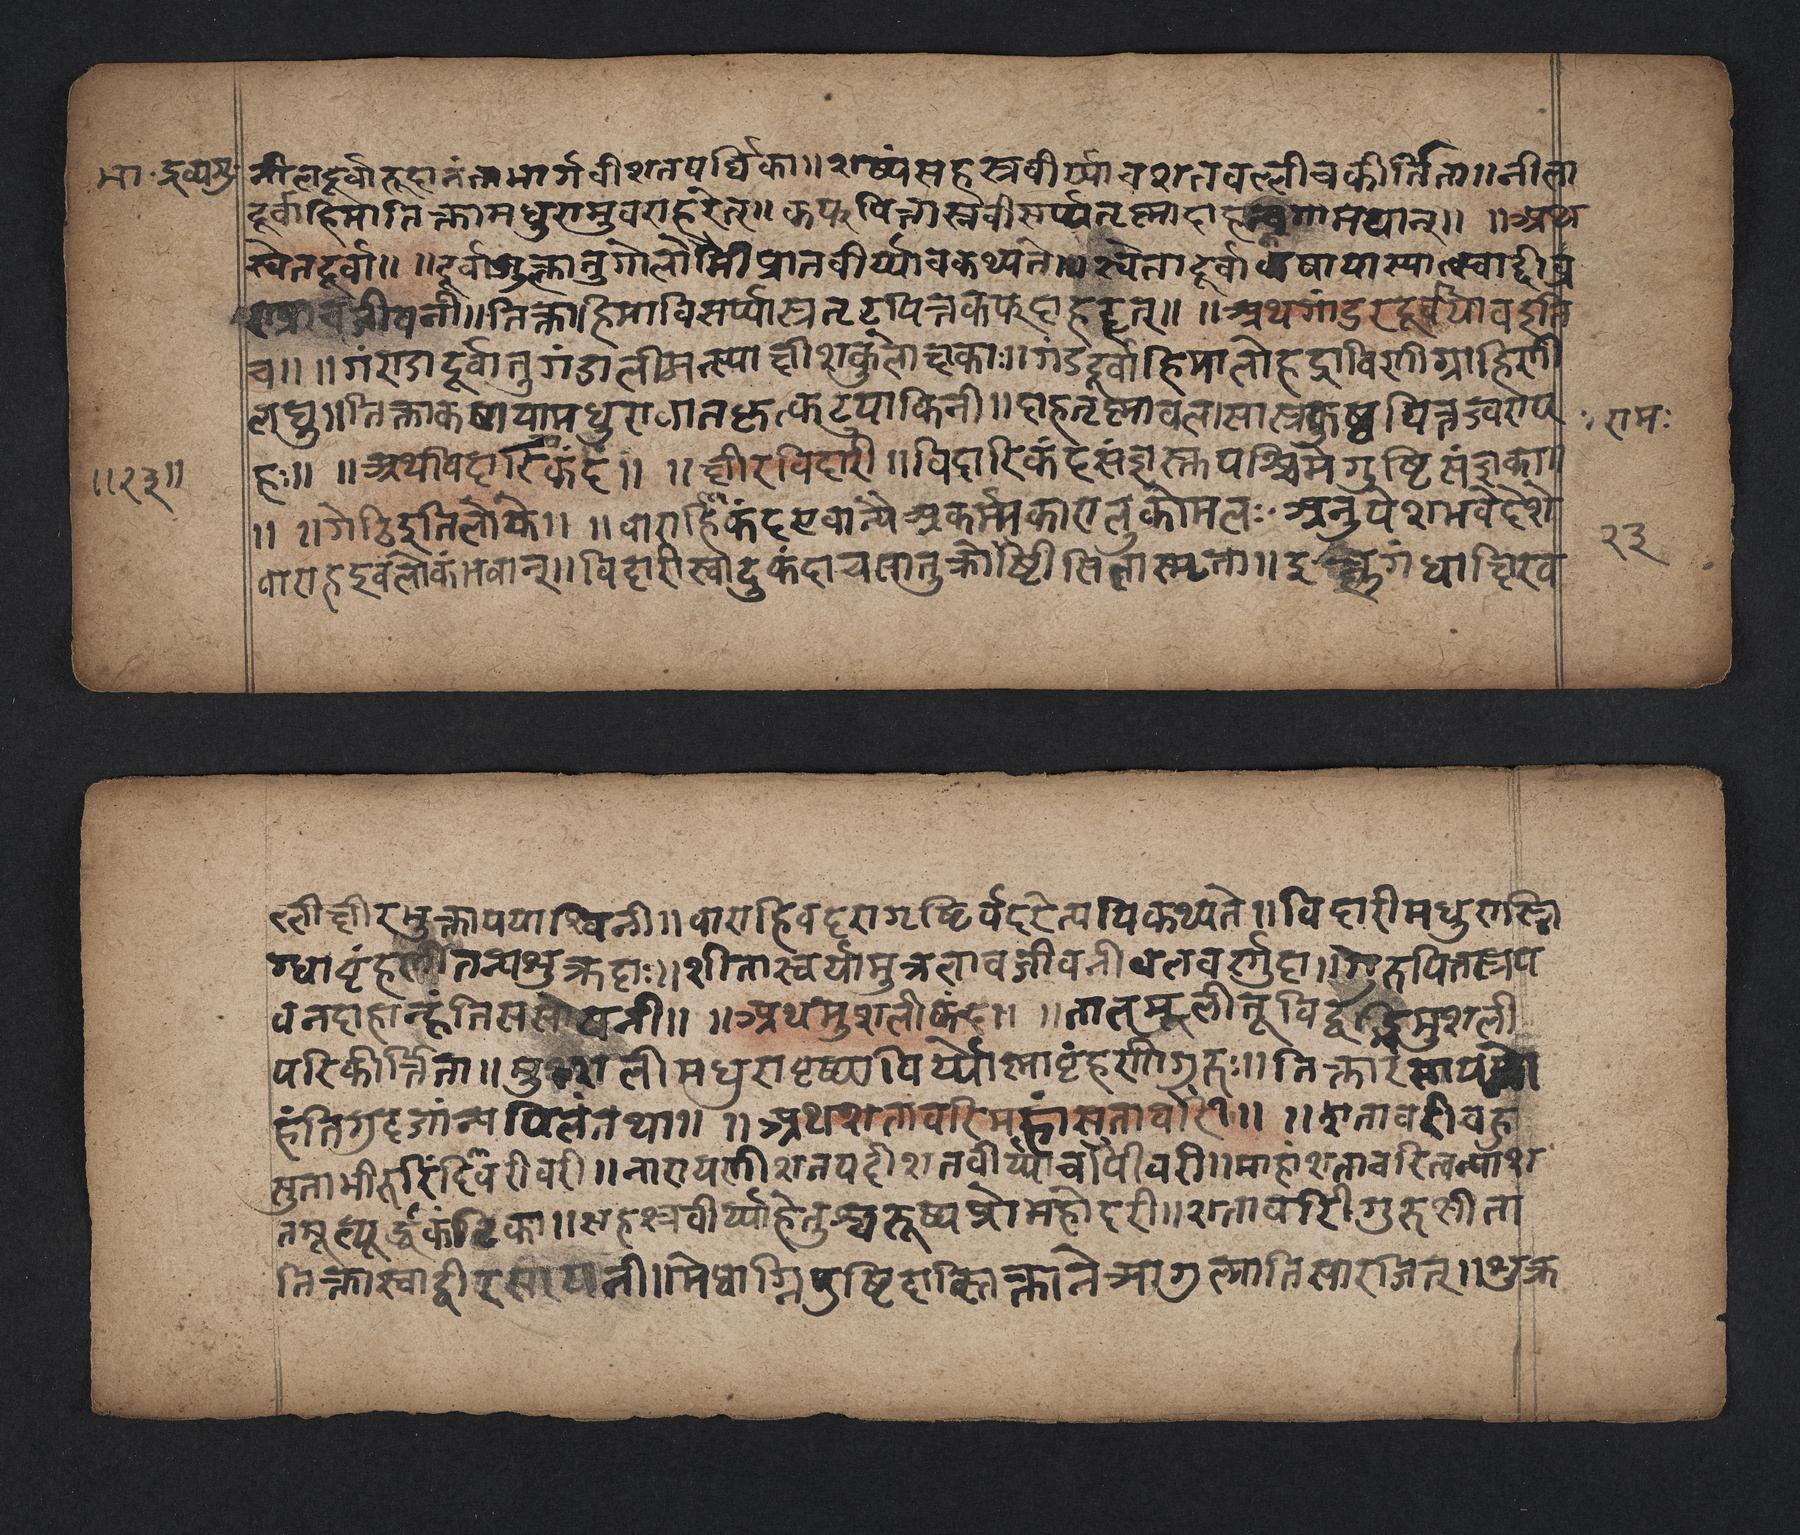 भा॰द्रव्यगु॰
नीलदूर्वारुहानंताभार्गवीशतपर्विका॥शष्पंसहस्रवीर्य्याचशतवल्लीचकीर्त्तिता॥नीला
दूर्वाहिमातिक्तामधुरातुवराहरेत्॥कफपित्तास्रवीसर्प्पतृष्णादाह ॥ ॥अथ
स्वेतदूर्वा॥ ॥दूर्वाशुक्लातुगोलोमीशतवीर्य्याचकथ्यते॥स्वेतादूर्वाकषायास्यात्स्वाद्वीव्र
जीवनी॥तिक्ताहिमाविसर्प्पास्रतृट्पित्तकफदाहहृत्॥ ॥अथगांडरदूर्वा
च॥ ॥गंराडादूर्वातुगंडालीमत्स्याक्षीशकुलाक्षकाः॥गंडदूर्वाहिमालोहद्राविणीग्राहिणी
लघु॥तिक्ताकषायामधुरावातकृत्कटुपाकिनी॥दाहतृष्णावलासास्रकुष्ठपित्तज्वराप
हः॥ ॥अथविदारिकंद॥ ॥क्षीरविदारी॥विदारिकंद
॥२३॥
रामः
॥ ॥गेठिइतिलोके॥ ॥वाराहिकंदएवान्यै
२३
वाराहइवलोमवान्॥विदारीस्वादुकंदाचसातुक्रोष्टीसितास्मृता॥इक्षुगंधाक्षिरव
ल्लीक्षीरशुक्लापयाश्विनी॥वाराहिवदरागृष्टिर्वदरेत्यपिकथ्यते॥विदारीमधुरास्नि
ग्धावृंहणीस्तन्यशुक्रदाः॥शीतास्वर्यामुत्रलाचजीवनीवलवर्णदा॥गुरुपित्तास्रप
वनदाहान्हंतिरसायनी॥ ॥अथमुशलीकंद॥ ॥तालमूलीतूविद्वद्भिमुशली
परिकीर्त्तिता॥मुशलीमधुरावृष्यावीर्य्योष्णावृंहणीगुरुः॥तिक्तारसायनी
हंतिगुदजान्यनिलंतथा॥ ॥अथशतावरिमहांसतावरी॥ ॥शतावरीवहु
सुताभीरुरिंदिवरीवरी॥नारायणीशतपदीशतवीर्य्याचपीवरी॥माहांशतावरित्वन्याश
तमूल्यूर्द्ध्वकंटिका॥सहस्रवीर्य्याहेतुश्चरुष्यप्रोमहोदरी॥शतावरीगुरुशीता
तिक्तास्वाद्वीरसायनी।मेधाग्निपुष्टिदास्निग्धानेत्र्यागुल्मातिसारजित्॥शुक्र